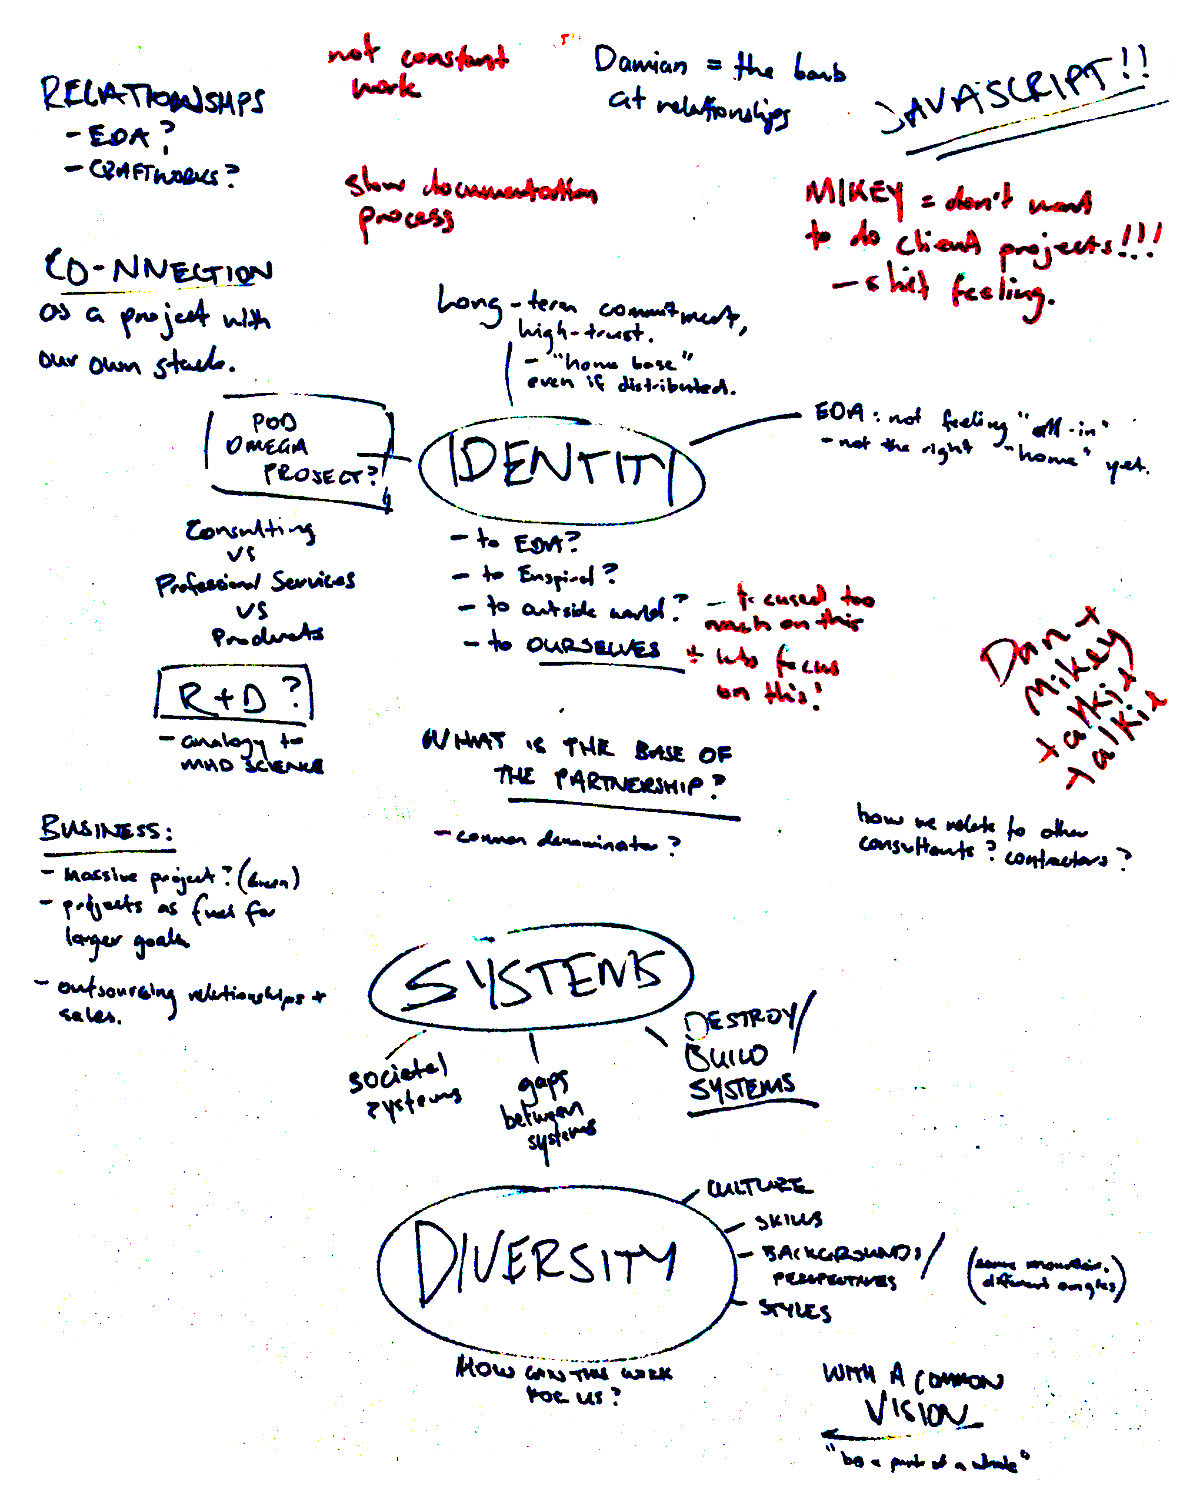 not constant
work
Damian = the bomb
at relationships
JAVASCRIPT!!
RELATIONSHIPS
- EDA?
- CRAFTWORKS?
slow documentation
process
MIKEY = don't want
to do client projects!!!
- shit feeling.
CO-NNECTION
as a project with
our own stack.
Long-term commitment,
high-trust.
- "home base"
even if distributed.
POD
OMEGA
PROJECT?
IDENTITY
EDA: not feeling "all-in"
- not the right "home" yet.
Consulting
VS
Professional Services
VS
Products
- to EDA?
- to Enspiral?
- to outside world? - focused too
much on this
- to OURSELVES + into focus
on this!
Dan +
Mikey
talkie
talkie
R+D?
- analogy to
MAD SCIENCE
WHAT IS THE BASE OF
THE PARTNERSHIP?
- common denominator?
how we relate to other
consultants? contractors?
BUSINESS:
- massive project?
- projects as fuel for
larger goals
- outsourcing relationships +
sales.
SYSTEMS
societal
systems
gaps
between
systems
DESTROY/
BUILD
SYSTEMS
DIVERSITY
- CULTURE
- SKILLS
- BACKGROUNDS/
PERSPECTIVES
(same mountain,
different angles)
- STYLES
HOW CAN THIS WORK
FOR US?
WITH A COMMON
VISION
"be a part of a whole"